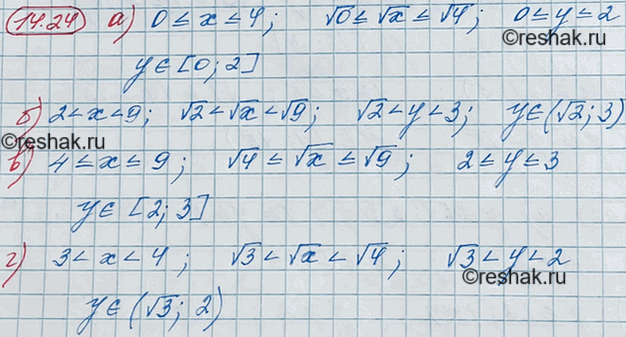 14.24 а) 0 ≤ x ≤ 4; √0 ≤ √x ≤ √4; 0 ≤ y ≤ 2
©reshak.ru
y ∈ [0; 2]
б) 2 < x < 9; √2 < √x < √9; √2 < y < 3; y ∈ (√2; 3)
©reshak.ru
в) 4 ≤ x ≤ 9; √4 ≤ √x ≤ √9; 2 ≤ y ≤ 3
y ∈ [2; 3]
г) 3 < x < 4; √3 < √x < √4; √3 < y < 2
©reshak.ru
y ∈ (√3; 2)